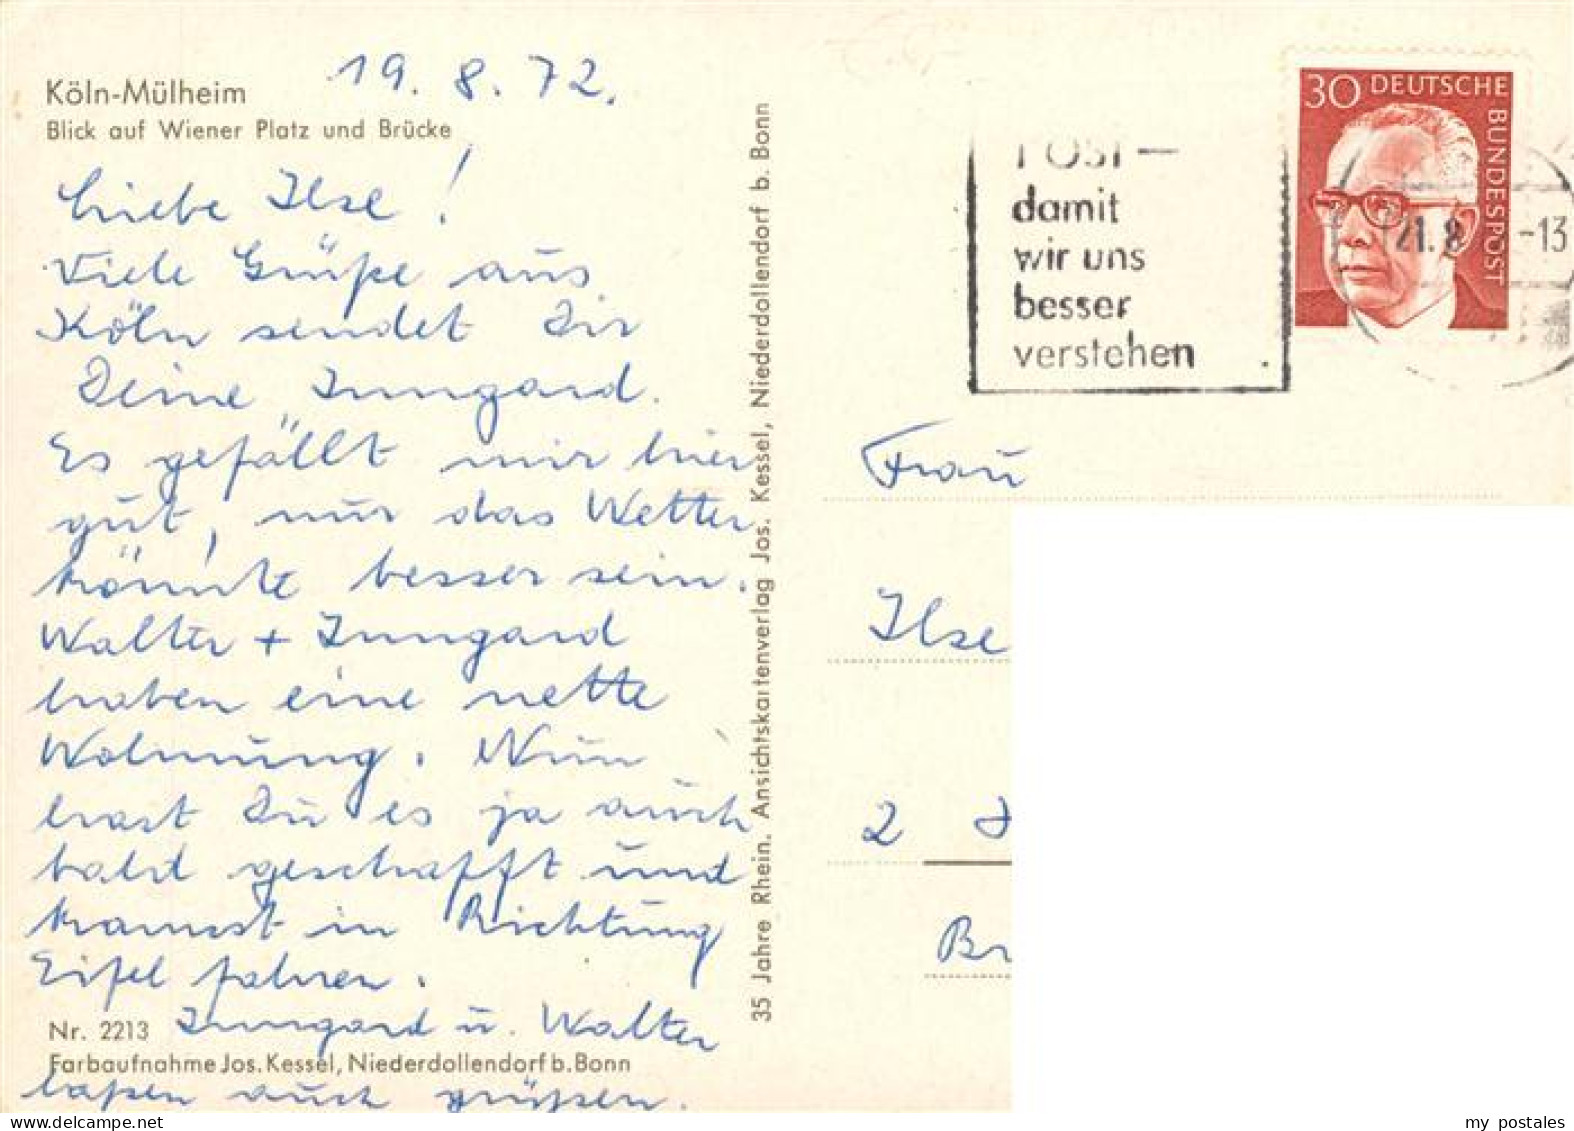 19. 8. 72.
Köln-Mülheim
Blick auf Wiener Platz und Brücke
Liebe Ilse!
Viele Grüße aus
Köln sendet Dir
Deine Irmgard.
Es gefällt mir hier
gut, nur das Wetter
könnte besser sein.
Walter + Irmgard
haben eine nette
Wohnung. Nun
hast Du es ja auch
bald geschafft und
kannst in Richtung
Eifel fahren.
Irmgard u. Walter
laßen auch grüßen.
Nr. 2213
Farbaufnahme Jos. Kessel, Niederdollendorf b. Bonn
35 Jahre Rhein. Ansichtskartenverlag Jos. Kessel, Niederdollendorf b. Bonn
POST —
damit
wir uns
besser
verstehen
30 DEUTSCHE
BUNDESPOST
21.8 -13
Frau
Ilse
2
Br
my postales